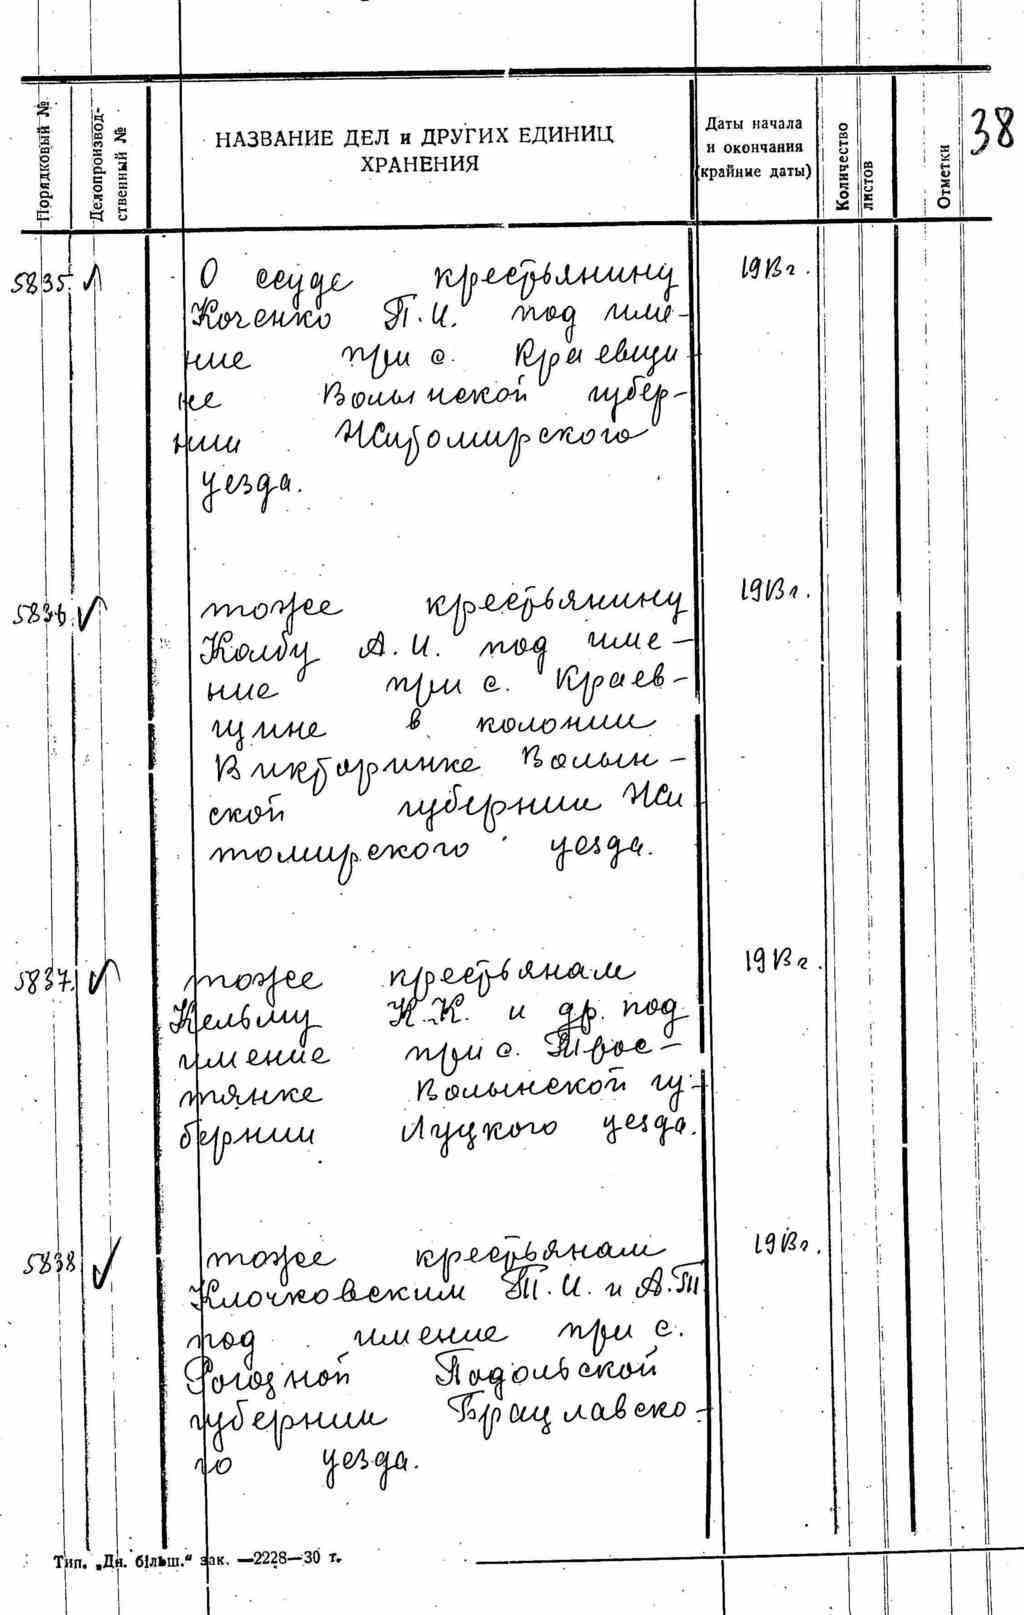 38
Порядковый №
Делопроизвод-
ственный №
НАЗВАНИЕ ДЕЛ и ДРУГИХ ЕДИНИЦ
ХРАНЕНИЯ
Даты начала
и окончания
(крайние даты)
Количество
листов
Отметки
5835. О ссуде крестьянину 1913 г.
Коченко П.И. под име-
ние при с. Краевщи-
не Волынской губер-
нии Житомирского
уезда.
5836. тоже крестьянину 1913 г.
Колбу А.И. под име-
ние при с. Краев-
щине в колонии
Викторинке Волын-
ской губернии Жи
томирского уезда.
5837. тоже крестьянам 1913 г.
Кельму К.К. и др. под
имение при с. Трос-
тянке Волынской гу-
бернии Луцкого уезда.
5838 тоже крестьянам 1913 г.
Клочковским Т.И. и А.Т
под имение при с.
Рогозной Подольской
губернии Брацлавско-
го уезда.
Тип. „Дн. більш.“ зак. —2228—30 т.